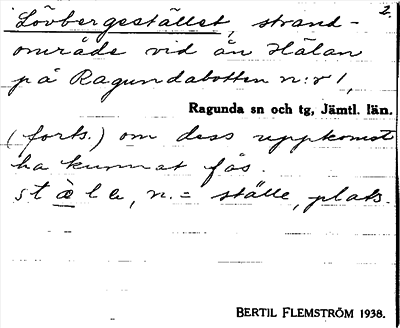 2.
Lövbergestället, strand-
område vid ån Hälan
på Ragundabotten n:r 1,
Ragunda sn och tg, Jämtl. län.
(forts.) om dess uppkomst
ha kunnat fås.
n. = ställe, plats.
BERTIL FLEMSTRÖM 1938.